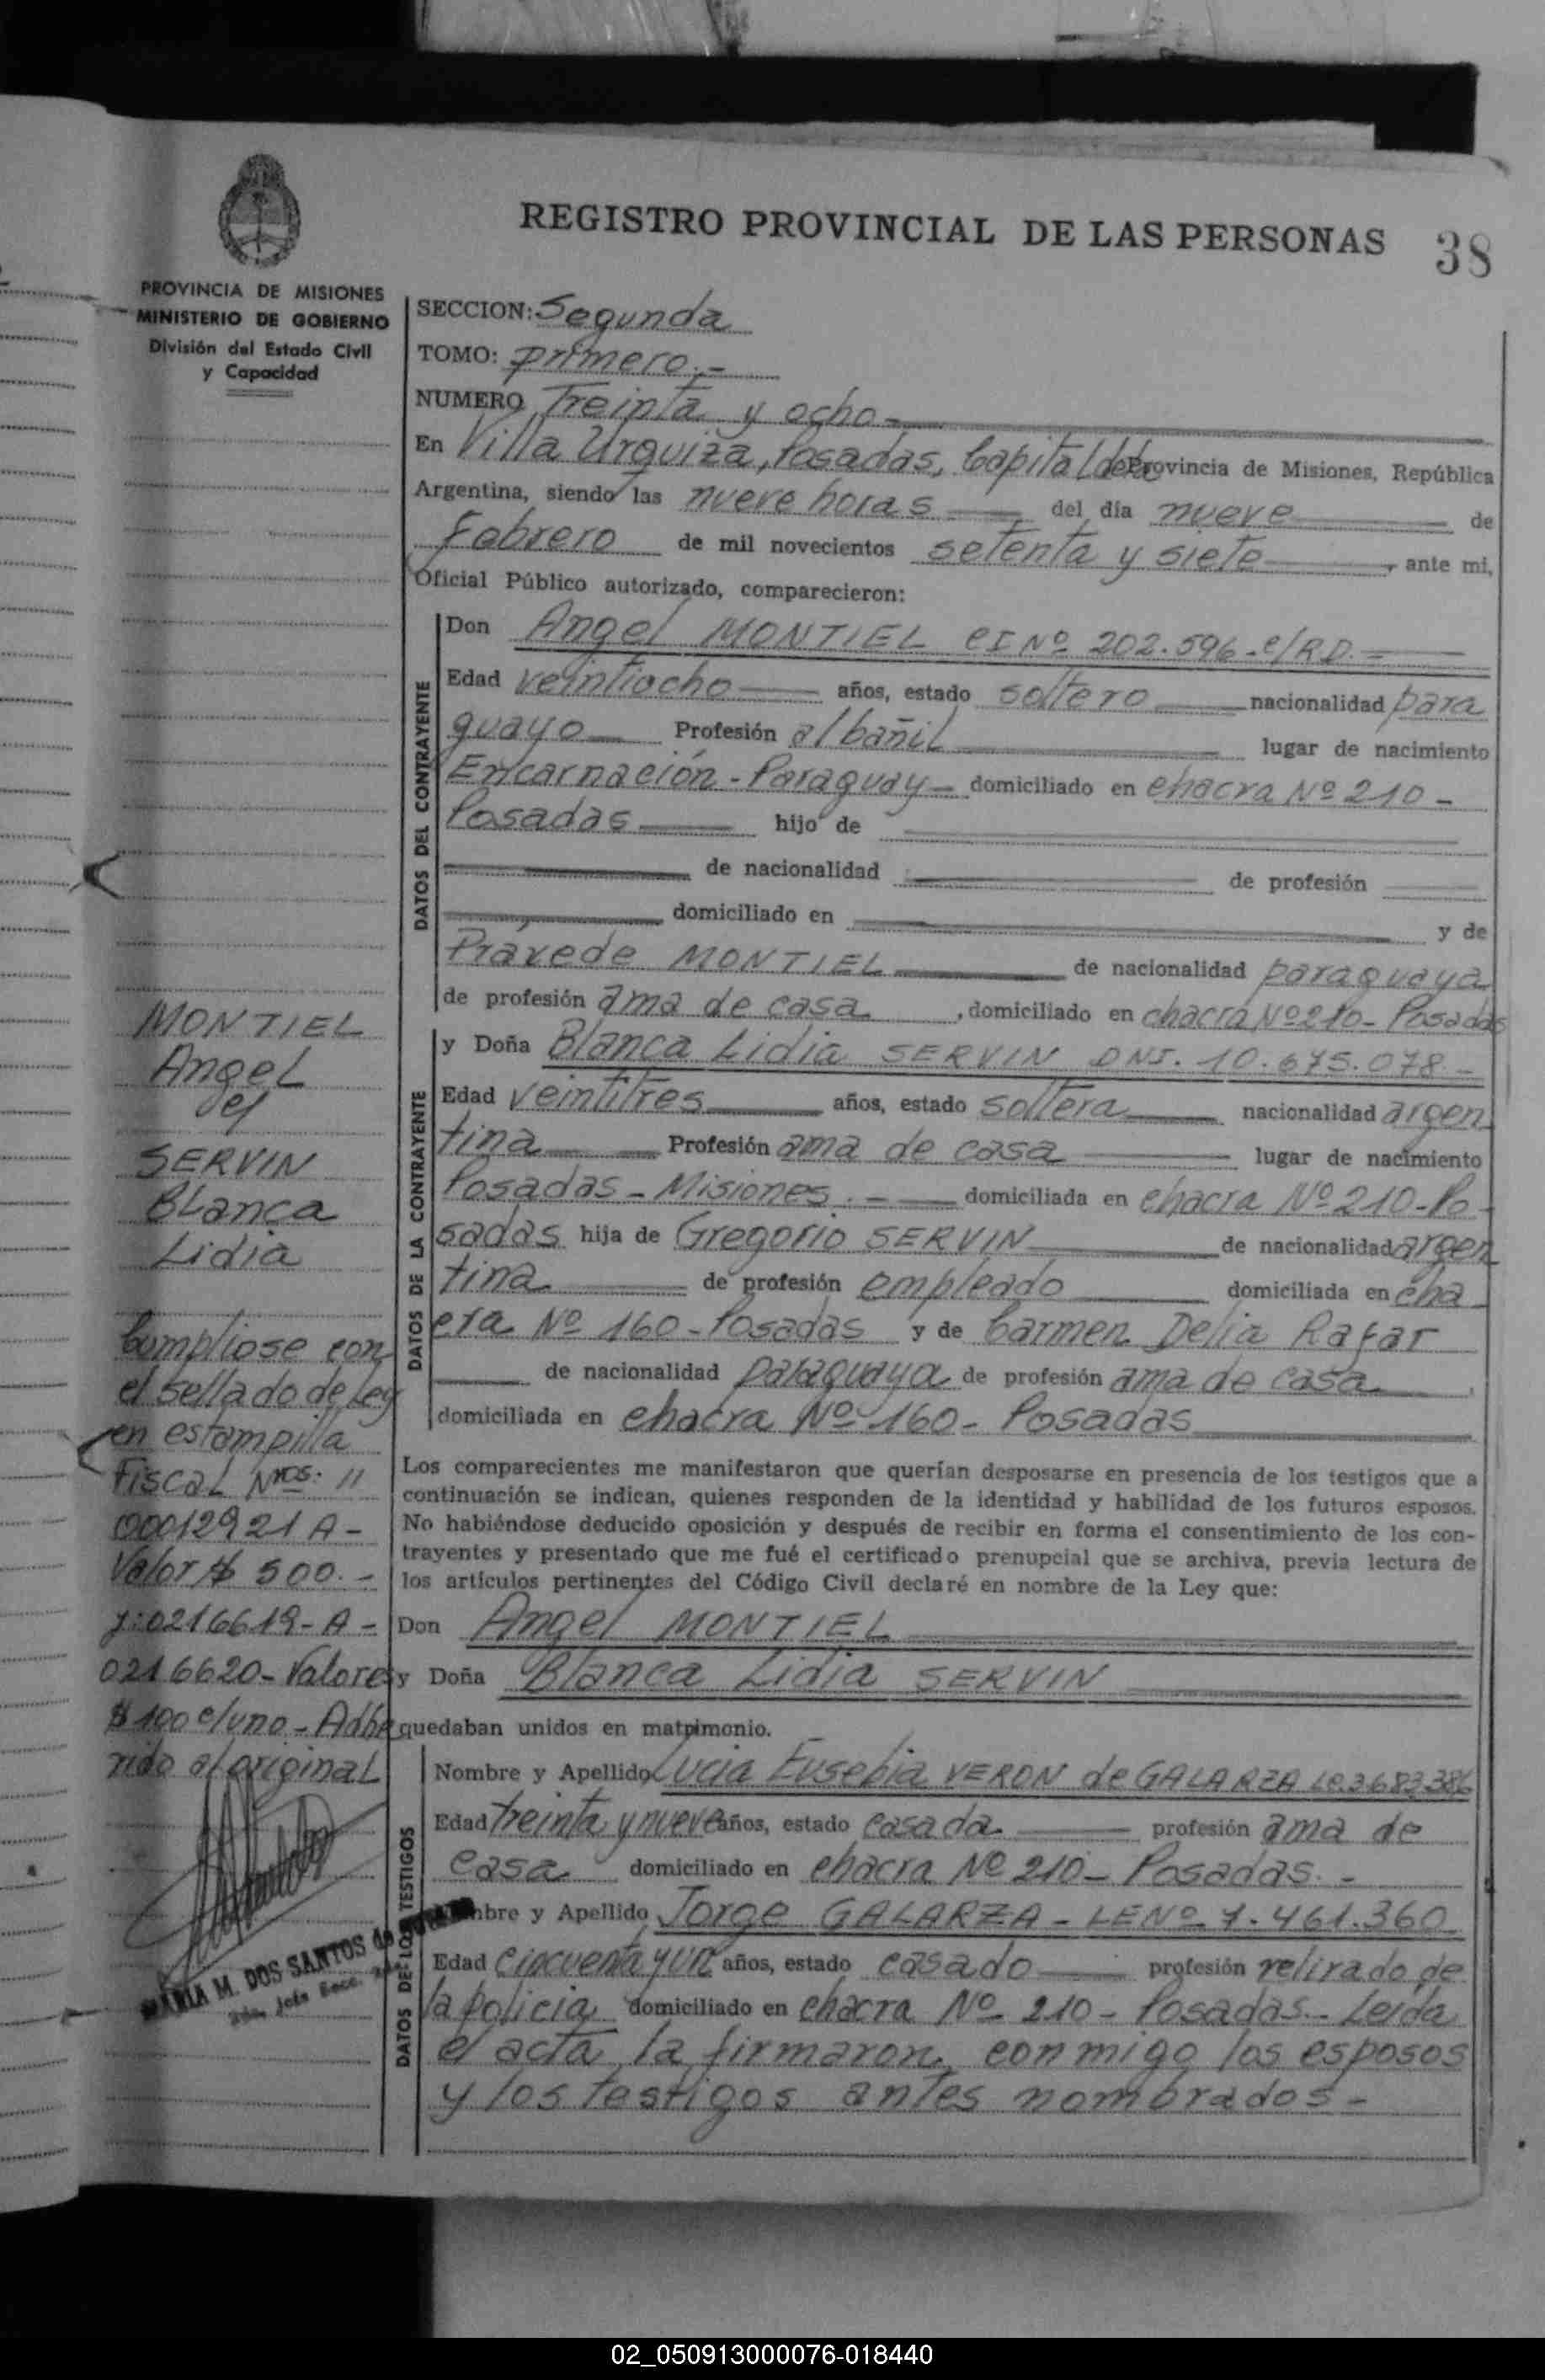 REGISTRO PROVINCIAL DE LAS PERSONAS 38
PROVINCIA DE MISIONES
MINISTERIO DE GOBIERNO
División del Estado Civil
y Capacidad
SECCION: Segunda
TOMO: primero.-
NUMERO Treinta y ocho-
En Villa Urquiza, Posadas, Capital de la Provincia de Misiones, República
Argentina, siendo las nueve horas del día nueve de
Febrero de mil novecientos setenta y siete, ante mi,
Oficial Público autorizado, comparecieron:
DATOS DEL CONTRAYENTE
Don Angel MONTIEL CI Nº 202.596-c/R.D.-
Edad veintiocho años, estado soltero nacionalidad para
guayo Profesión albañil lugar de nacimiento
Encarnación-Paraguay- domiciliado en chacra Nº 210-
Posadas hijo de
de nacionalidad de profesión
domiciliado en y de
Práxede MONTIEL de nacionalidad paraguaya
de profesión ama de casa, domiciliado en chacra Nº 210- Posadas
DATOS DE LA CONTRAYENTE
y Doña Blanca Lidia SERVIN DNI. 10.675.078-
Edad veintitres años, estado soltera nacionalidad argen
tina Profesión ama de casa lugar de nacimiento
Posadas-Misiones.- domiciliada en chacra Nº 210-Po-
sadas hija de Gregorio SERVIN de nacionalidad argen
tina de profesión empleado domiciliada en cha
cra Nº 160-Posadas y de Carmen Delia Rafar
de nacionalidad paraguaya de profesión ama de casa,
domiciliada en chacra Nº 160- Posadas
Los comparecientes me manifestaron que querían desposarse en presencia de los testigos que a
continuación se indican, quienes responden de la identidad y habilidad de los futuros esposos.
No habiéndose deducido oposición y después de recibir en forma el consentimiento de los con-
trayentes y presentado que me fué el certificado prenupcial que se archiva, previa lectura de
los artículos pertinentes del Código Civil declaré en nombre de la Ley que:
Don Angel MONTIEL
y Doña Blanca Lidia SERVIN
quedaban unidos en matrimonio.
DATOS DE LOS TESTIGOS
Nombre y Apellido Lucia Eusebia VERON de GALARZA LC.3.683.386
Edad treinta y nueve años, estado casada profesión ama de
casa domiciliado en chacra Nº 210- Posadas.-
Nombre y Apellido Jorge GALARZA - LE Nº 7.461.360
Edad cincuenta y un años, estado casado profesión retirado de
la policia domiciliado en chacra Nº 210- Posadas.- Leida
el acta, la firmaron conmigo los esposos
y los testigos antes nombrados-
MONTIEL
Angel
y
SERVIN
Blanca
Lidia
Cumpliose con
el sellado de Ley
en estampilla
Fiscal Nros: 11
00012921 A-
Valor $ 500.-
y: 0216619- A-
0216620-Valores
$ 100 c/uno-Adhe
rido al original
MARIA M. DOS SANTOS de
02_050913000076-018440